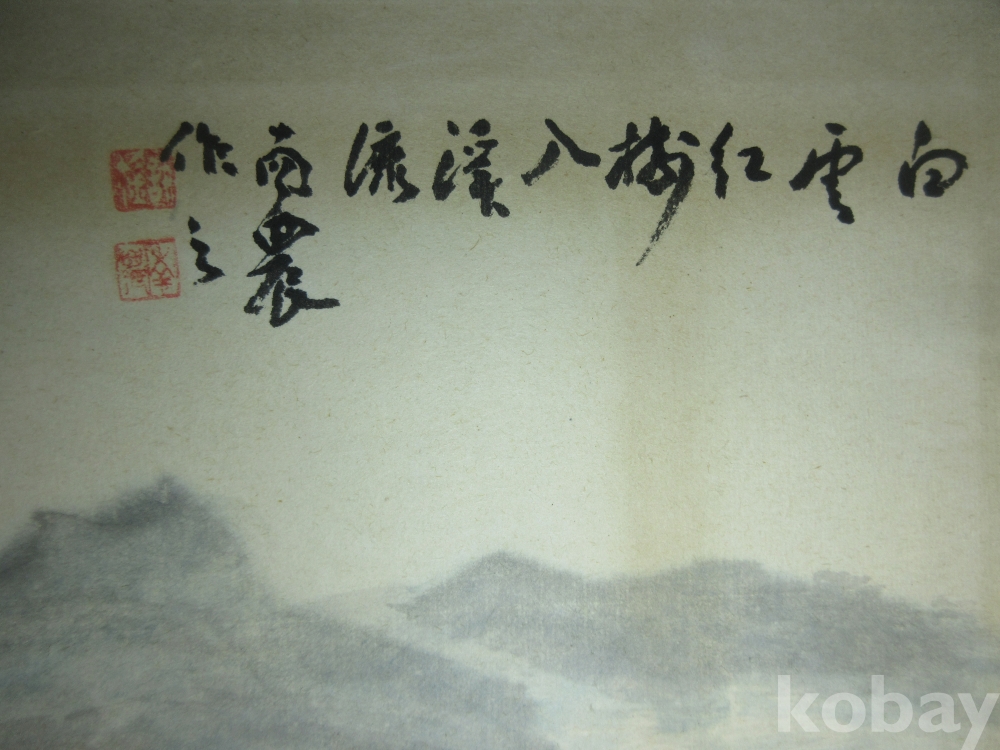 白雲紅樹入溪流
南農
作之
kobay